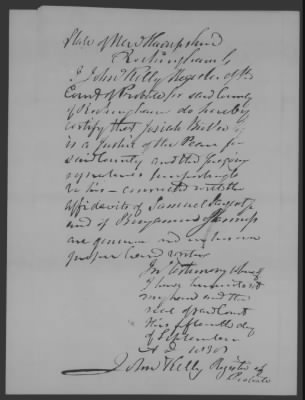 State of New Hampshire
Rockingham
I John Kelly Register of the
Court of Probate for said County
of Rockingham do hereby
certify that Josiah
is a Justice of the Peace for
said County and the foregoing
signature purporting to
be his connected with the
affidavits of Samuel
and of Benjamin
are genuine and in his own
proper hand writing
In testimony whereof
I have hereunto set
my hand and the
seal of said Court
this fifteenth day
of September
A D
John Kelly Register of
Probate